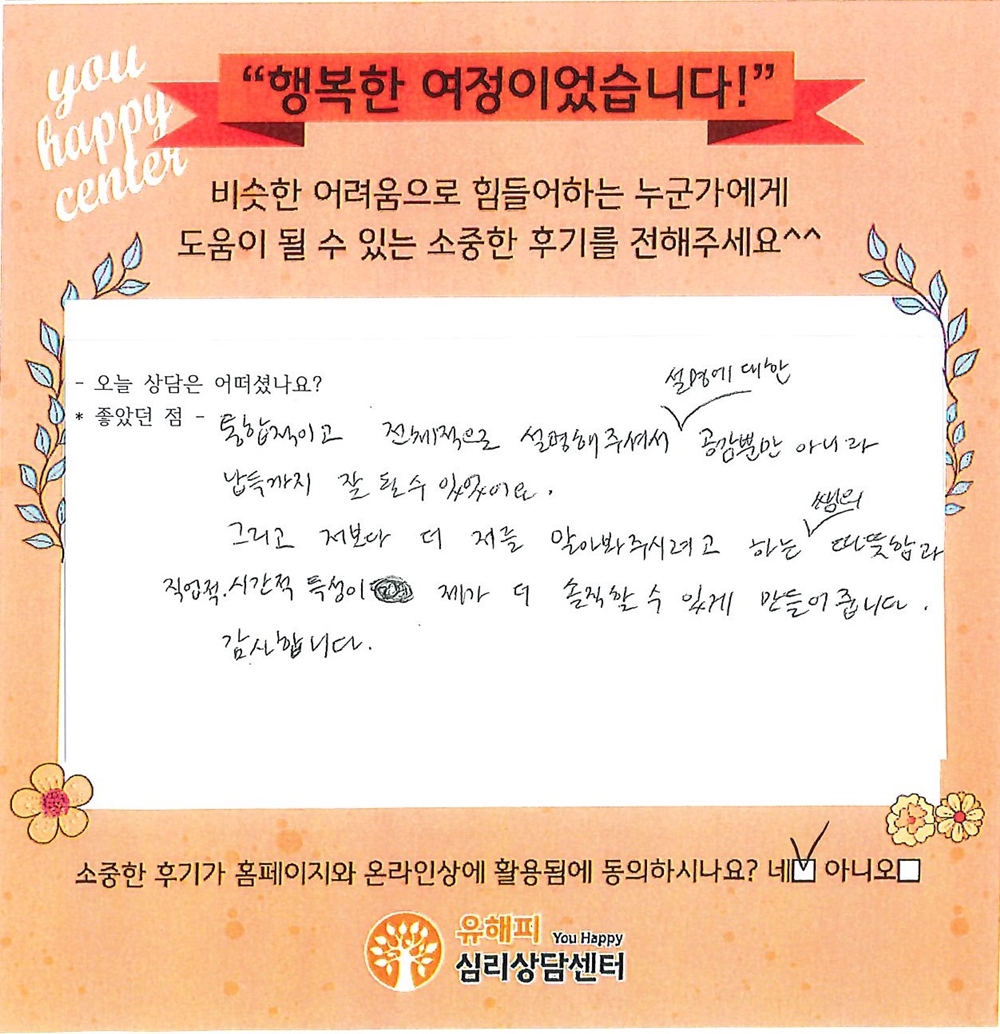 you
happy
center
“행복한 여정이었습니다!”
비슷한 어려움으로 힘들어하는 누군가에게
도움이 될 수 있는 소중한 후기를 전해주세요^^
- 오늘 상담은 어떠셨나요?
설명에 대한
* 좋았던 점 - 통합적이고 전체적으로 설명해주셔서 공감뿐만 아니라
납득까지 잘 될 수 있었어요.
쌤의
그리고 저보다 더 저를 알아봐주시려고 하는 따뜻함과
직업적.시간적 특성이 제가 더 솔직할 수 있게 만들어 줍니다.
감사합니다.
소중한 후기가 홈페이지와 온라인상에 활용됨에 동의하시나요? 네 아니오
유해피 You Happy
심리상담센터